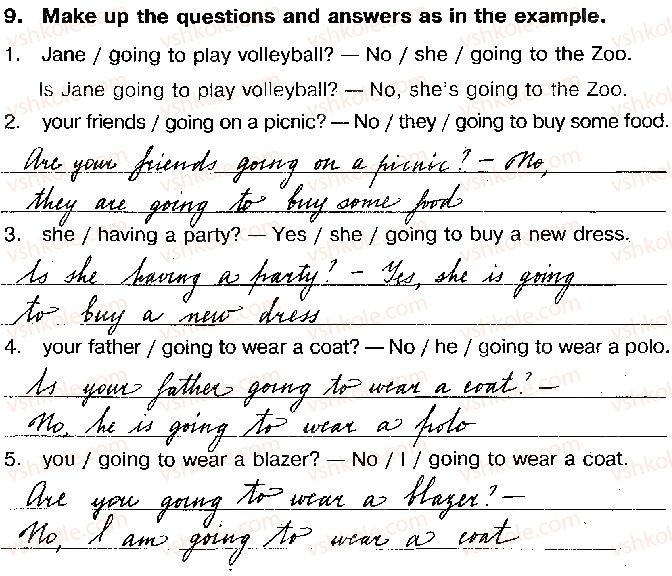 9. Make up the questions and answers as in the example.
1. Jane / going to play volleyball? — No / she / going to the Zoo.
Is Jane going to play volleyball? — No, she's going to the Zoo.
2. your friends / going on a picnic? — No / they / going to buy some food.
Are your friends going on a picnic? – No,
they are going to buy some food
3. she / having a party? — Yes / she / going to buy a new dress.
Is she having a party? – Yes, she is going
to buy a new dress
4. your father / going to wear a coat? — No / he / going to wear a polo.
Is your father going to wear a coat? –
No, he is going to wear a polo
5. you / going to wear a blazer? — No / I / going to wear a coat.
Are you going to wear a blazer? –
No, I am going to wear a coat